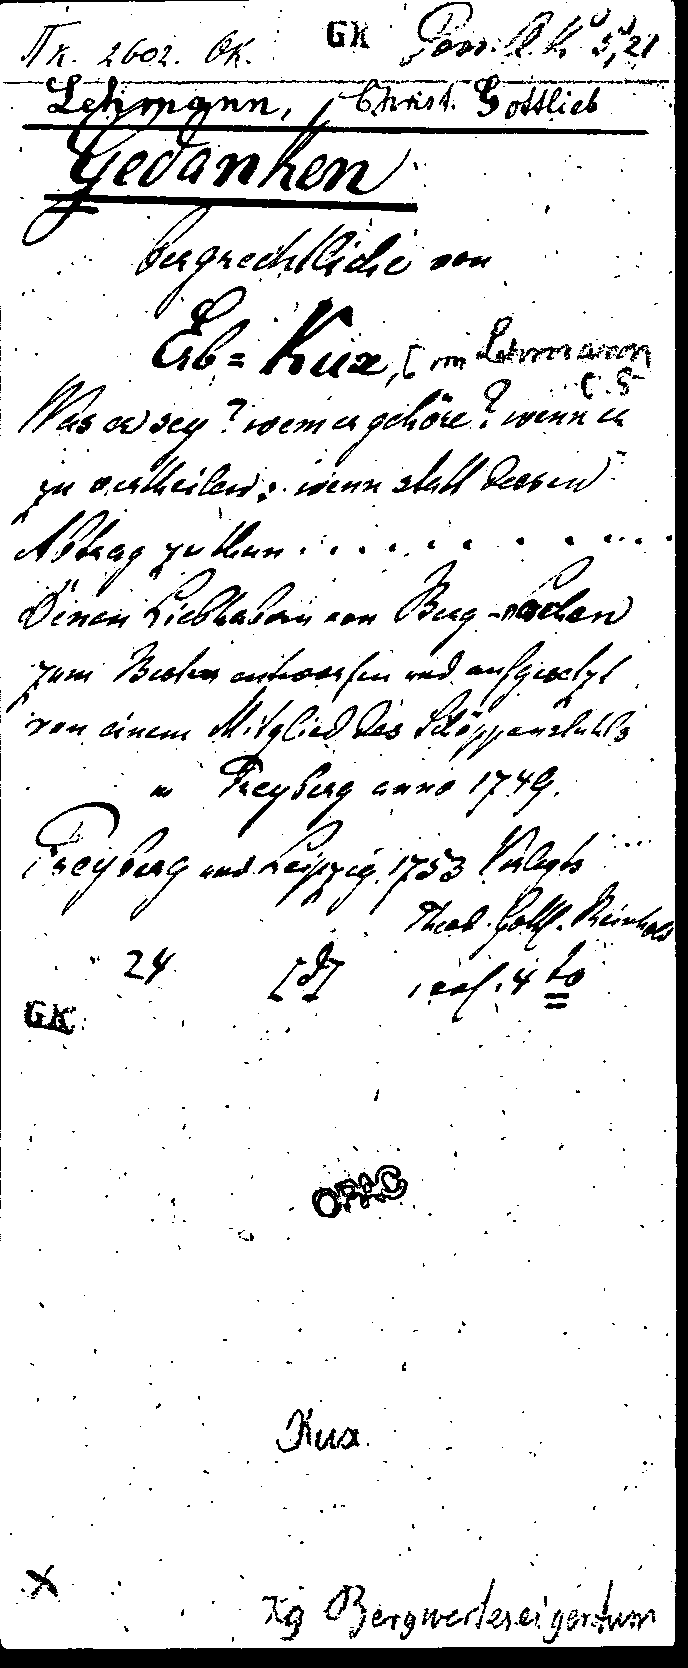 Nk. 2602. Ok. GK
Lehmann, Christ. Gottlieb
Gedanken
bergrechtliche von
Erb=Kux, [von Lehmann
C. G.
Was er sey? wem er gehöre? wenn er
zu vertheilen? wenn statt dessen
Abtrag zu thun . . . . . . . . . .
Denen Liebhabern von Berg-Sachen
zum Besten entworfen und aufgesetzt
von einem Mitglied des Schöppenstuhls
in Freyberg anno 1749.
Freyberg und Leipzig 1753 Verlegts
Theod. Gottl. Reinhold
24 [8] 4 to
GK
OPAC
Kux
x
Kg Bergwerkseigentum